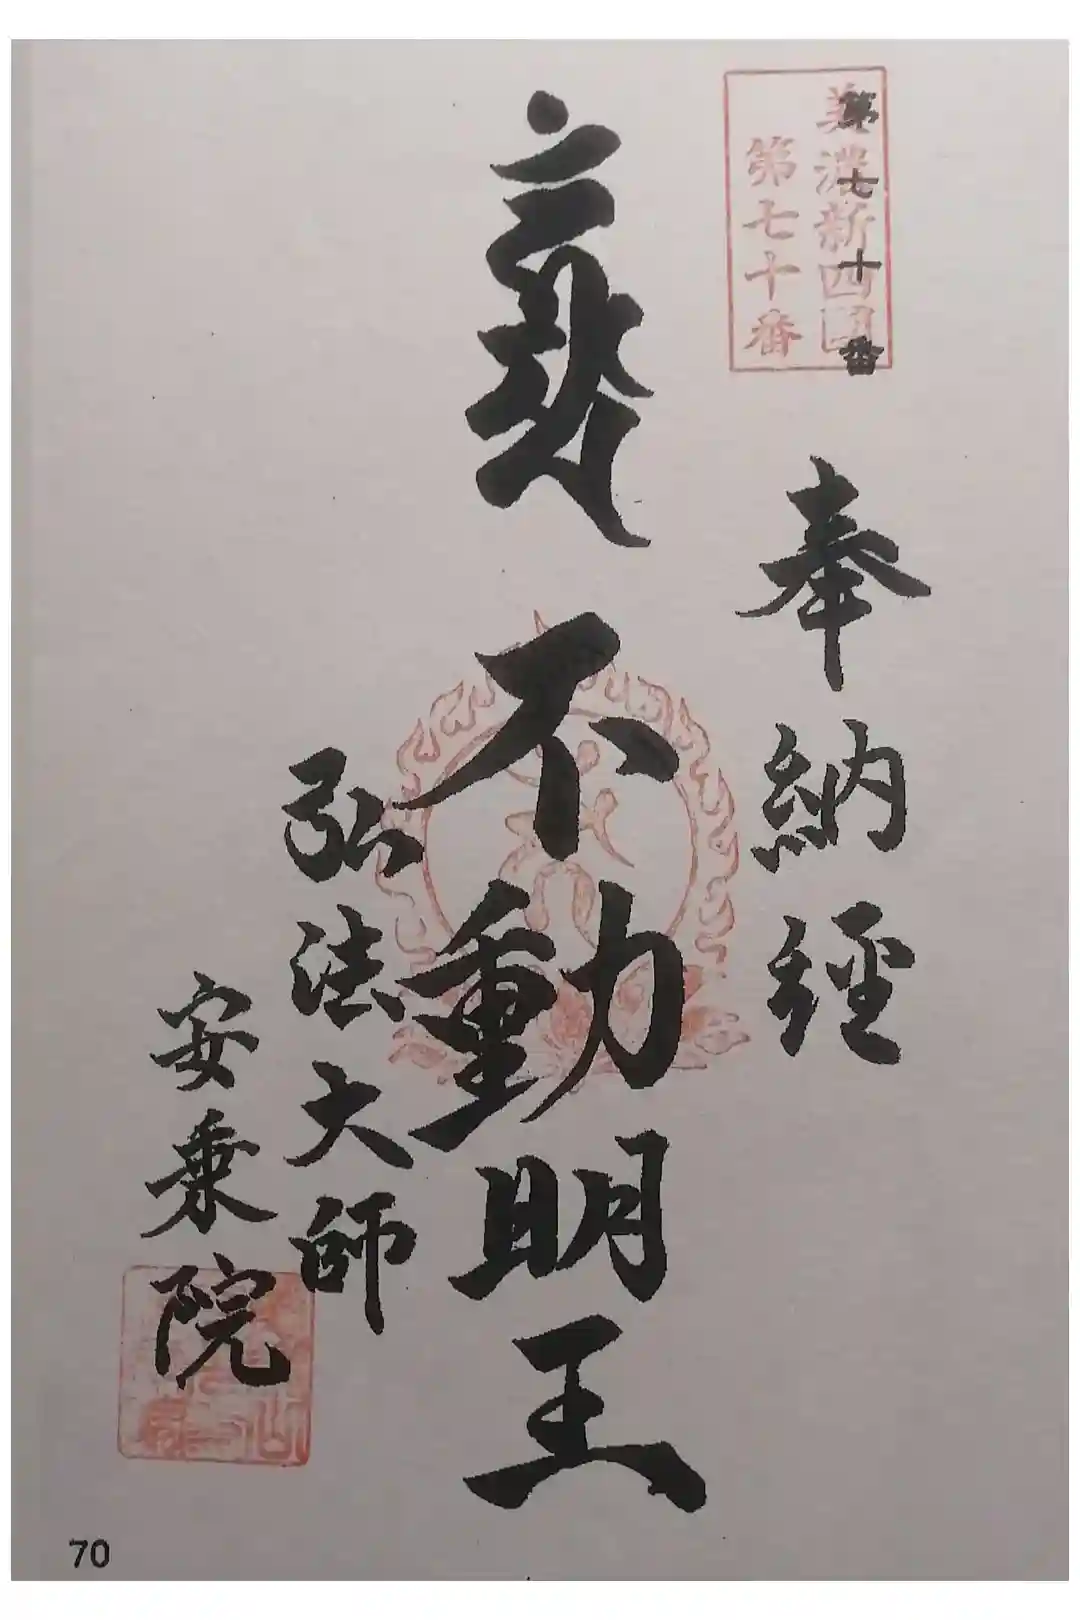 美濃新四國
第七十番
第七十番
奉納経
不動明王
弘法大師
安乗院
70